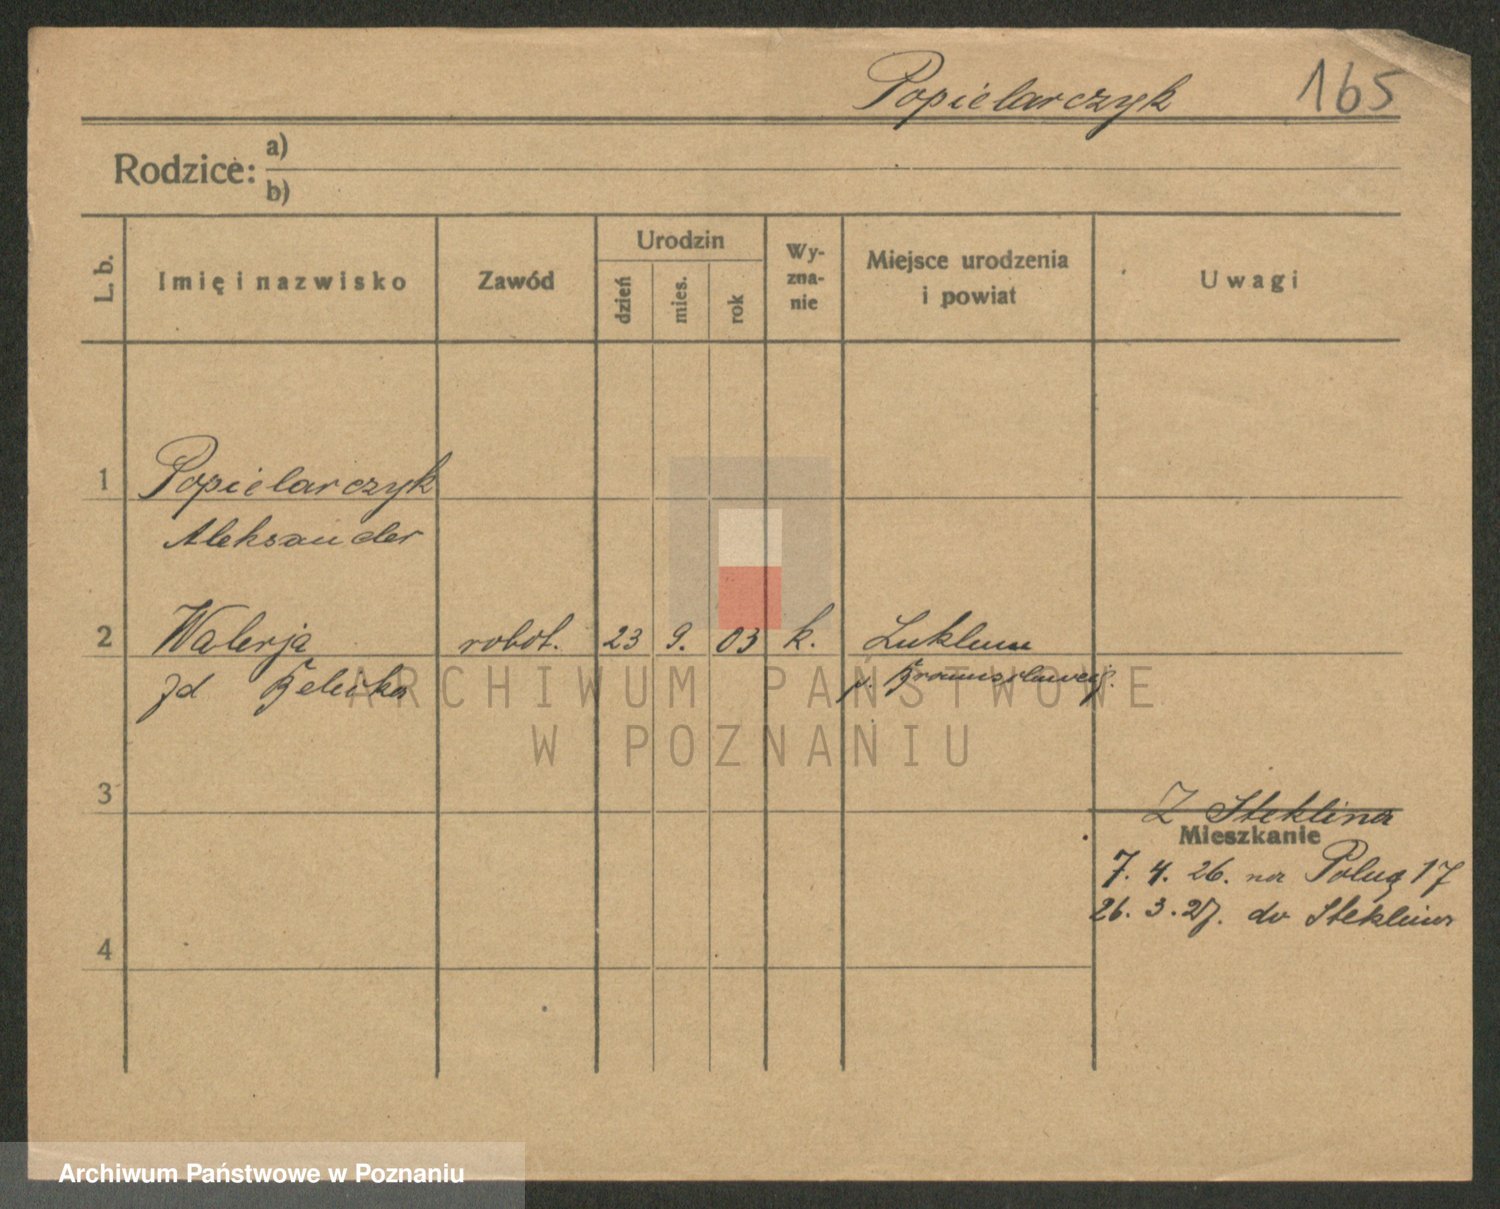 Popielarczyk 165
Rodzice: a)
b)
L. b. Imię i nazwisko Zawód Urodzin dzień mies. rok Wyznanie Miejsce urodzenia i powiat Uwagi
1 Popielarczyk
Aleksander
2 Walerja robot. 23 9. 03 k. Luklum
zd p. Braunschweig.
ARCHIWUM PAŃSTWOWE
W POZNANIU
3
Z Steklina
Mieszkanie
7. 4. 26. na 17
26. 3. 27. do Steklina
4
Archiwum Państwowe w Poznaniu